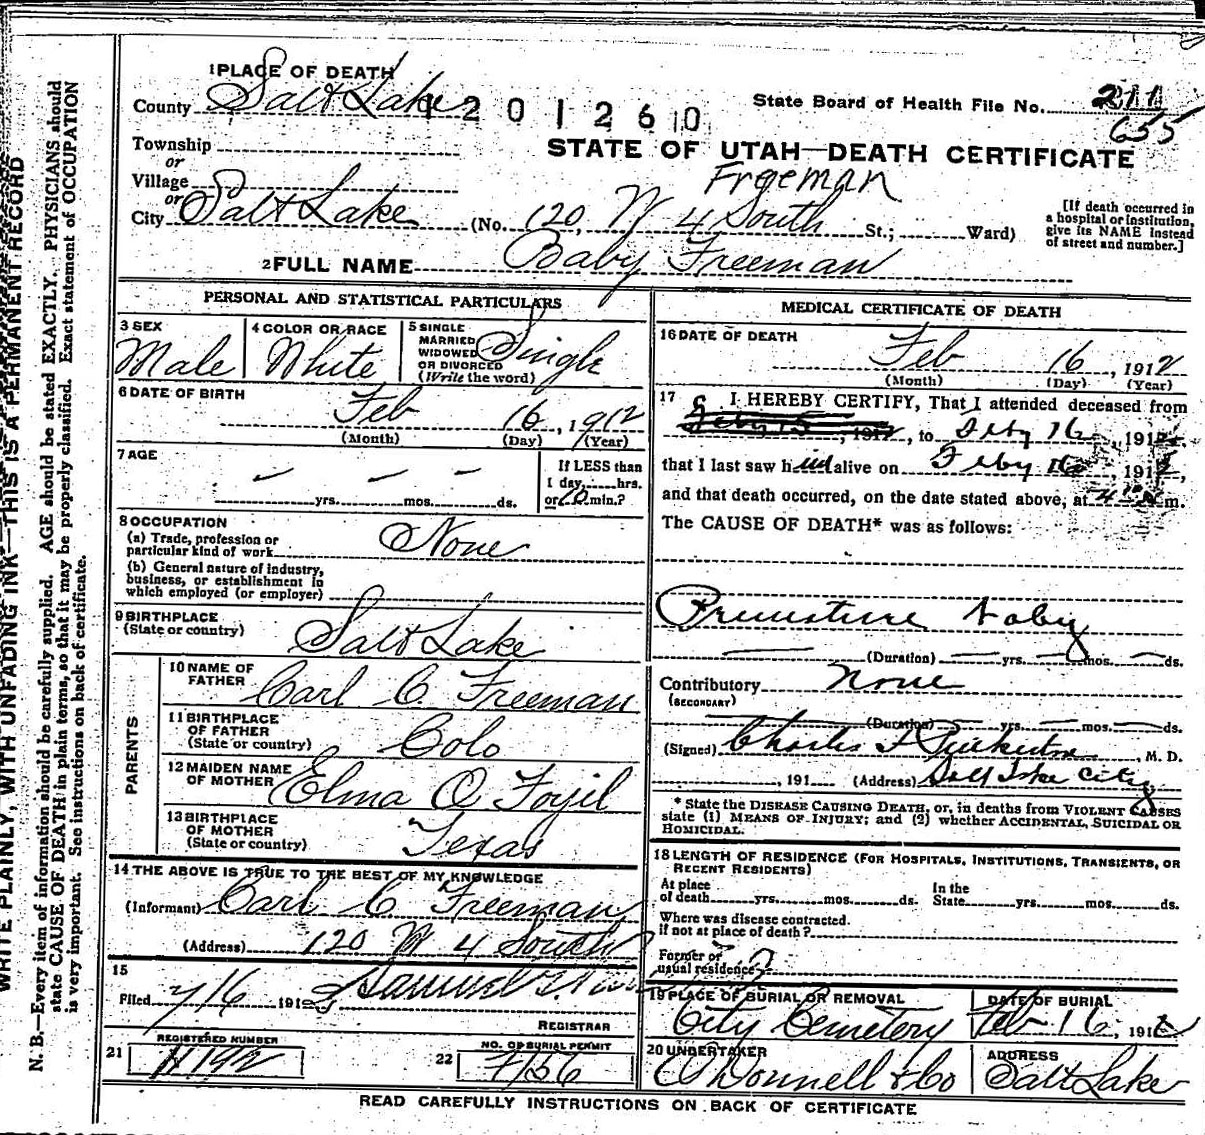 WRITE PLAINLY, WITH UNFADING INK—THIS IS A PERMANENT RECORD
N. B.—Every item of information should be carefully supplied. AGE should be stated EXACTLY. PHYSICIANS should
state CAUSE OF DEATH in plain terms, so that it may be properly classified. Exact statement of OCCUPATION
is very important. See instructions on back of certificate.
1 PLACE OF DEATH
County Salt Lake 1201260 State Board of Health File No. 211
655
Township
STATE OF UTAH—DEATH CERTIFICATE
or
Village
Freeman
or
City Salt Lake (No. 120 W 4 South St.; Ward)
[If death occurred in
a hospital or institution,
give its NAME instead
of street and number.]
2 FULL NAME Baby Freeman
PERSONAL AND STATISTICAL PARTICULARS
3 SEX Male
4 COLOR OR RACE White
5 SINGLE
MARRIED
WIDOWED
OR DIVORCED
(Write the word) Single
6 DATE OF BIRTH
Feb 16, 1912
(Month) (Day) (Year)
7 AGE
— — —
yrs. mos. ds.
If LESS than
1 day, hrs.
or 10 min.?
8 OCCUPATION
(a) Trade, profession or
particular kind of work None
(b) General nature of industry,
business, or establishment in
which employed (or employer)
9 BIRTHPLACE
(State or country) Salt Lake
PARENTS
10 NAME OF
FATHER Carl C. Freeman
11 BIRTHPLACE
OF FATHER
(State or country) Colo
12 MAIDEN NAME
OF MOTHER Elma O
13 BIRTHPLACE
OF MOTHER
(State or country) Texas
14 THE ABOVE IS TRUE TO THE BEST OF MY KNOWLEDGE
(Informant) Carl C Freeman
(Address) 120 W 4 South
15
Filed 2/16 191 Samuel G.
REGISTRAR
21 REGISTERED NUMBER
H192
22 NO. OF BURIAL PERMIT
7156
MEDICAL CERTIFICATE OF DEATH
16 DATE OF DEATH
Feb 16, 1912
(Month) (Day) (Year)
17 I HEREBY CERTIFY, That I attended deceased from
Feby 15, 1912, to Feby 16, 1912.
that I last saw him alive on Feby 16 1912,
and that death occurred, on the date stated above, at 4 m.
The CAUSE OF DEATH* was as follows:
Premature baby
(Duration) yrs. mos. ds.
Contributory None
(SECONDARY)
(Duration) yrs. mos. ds.
(Signed) Charles F Pinkerton, M. D.
, 191 (Address) Salt Lake City
* State the DISEASE CAUSING DEATH, or, in deaths from VIOLENT CAUSES
state (1) MEANS OF INJURY; and (2) whether ACCIDENTAL, SUICIDAL OR
HOMICIDAL.
18 LENGTH OF RESIDENCE (FOR HOSPITALS, INSTITUTIONS, TRANSIENTS, OR
RECENT RESIDENTS)
At place
of death yrs. mos. ds.
In the
State yrs. mos. ds.
Where was disease contracted.
if not at place of death?
Former or
usual residence
19 PLACE OF BURIAL OR REMOVAL
City Cemetery
DATE OF BURIAL
Feb 16, 1912
20 UNDERTAKER
O'Donnell & Co
ADDRESS
Salt Lake
READ CAREFULLY INSTRUCTIONS ON BACK OF CERTIFICATE